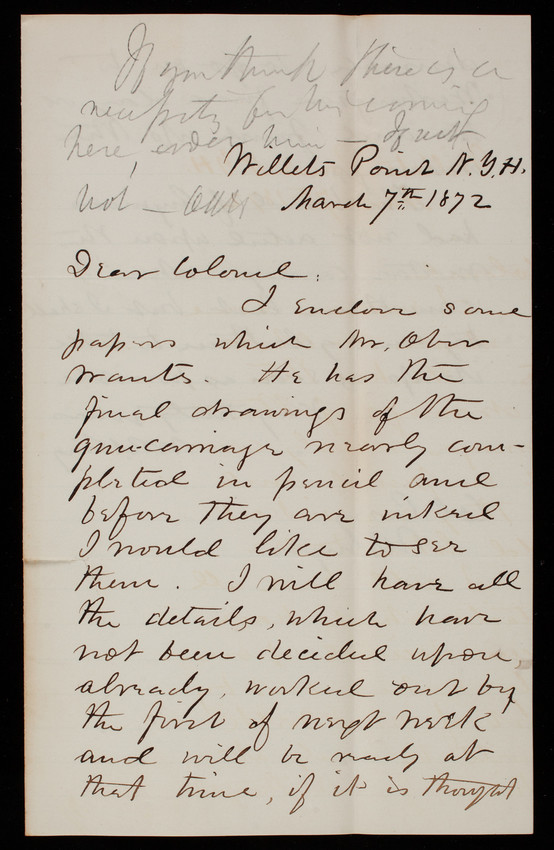 If you think there is a
necessity for his coming
here, order him — If not
Willets Point N.Y.H.
not —
March 7th 1872
Dear Colonel:
I enclose some
papers which Mr. Ober
wants. He has the
final drawings of the
gun-carriage nearly com-
pleted in pencil and
before they are inked
I would like to see
them. I will have all
the details, which have
not been decided upon,
already, worked out by
the first of next week
and will be ready at
that time, if it is thought